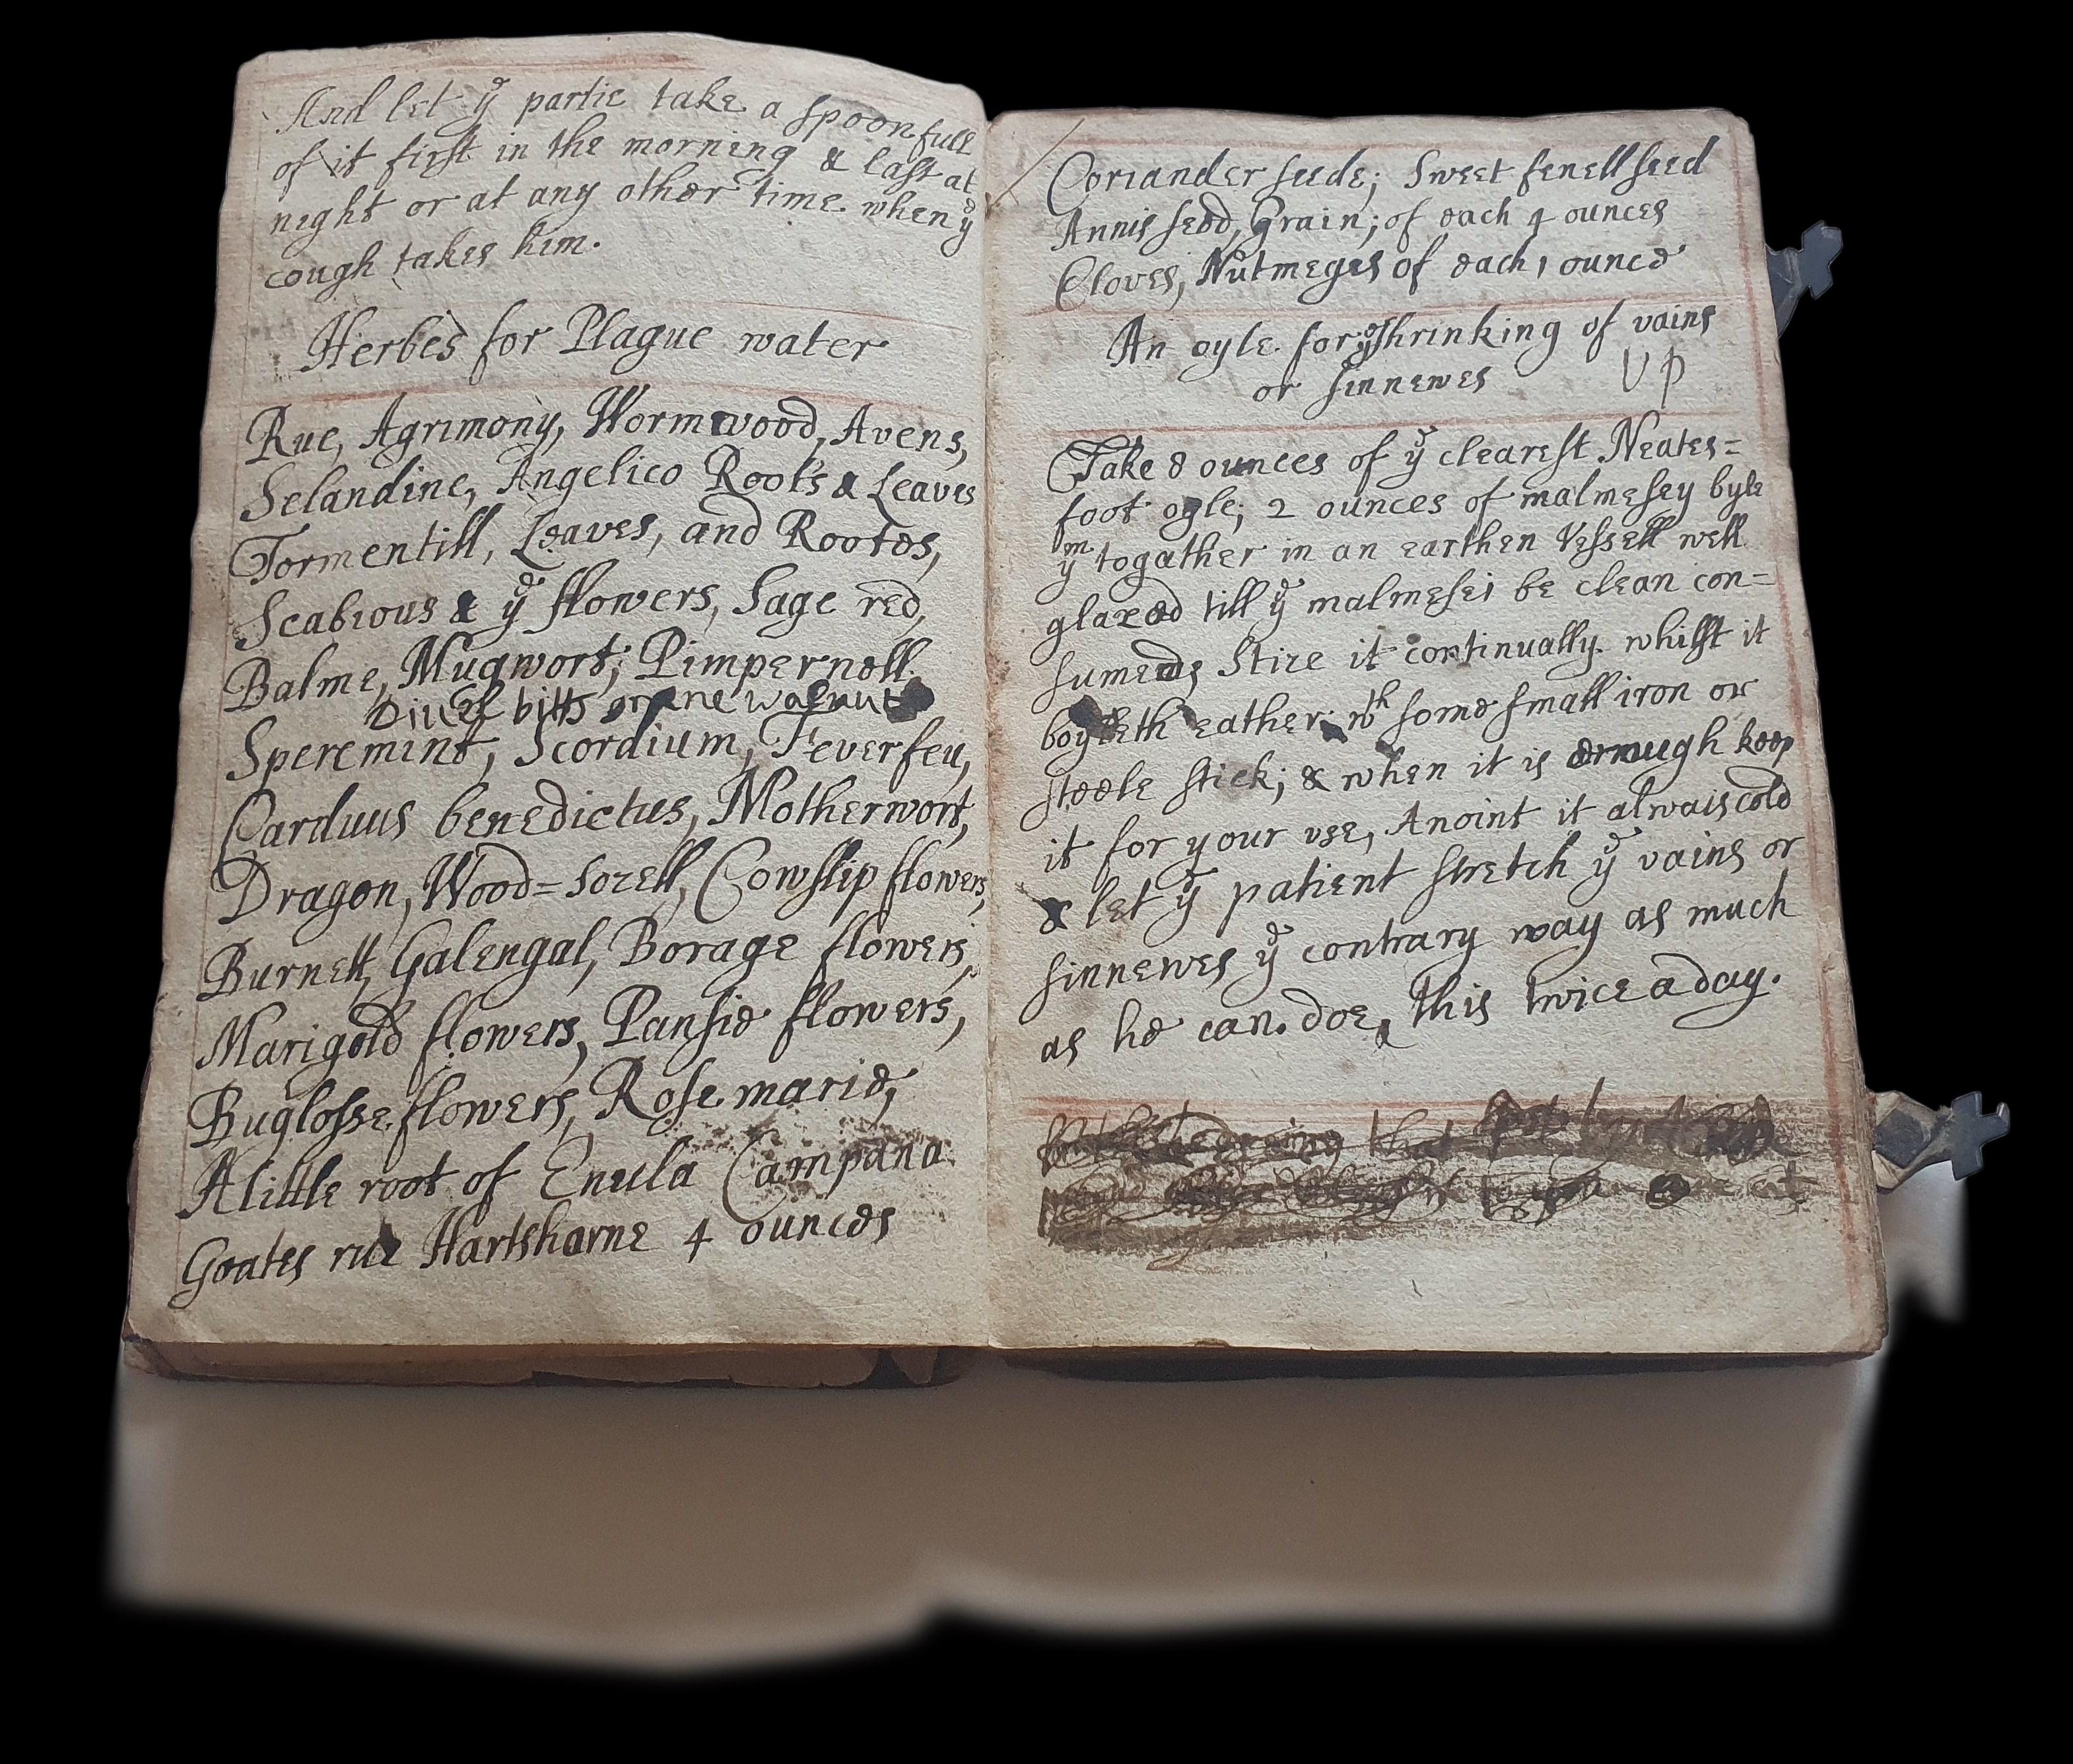 And let yͤ partie take a spoonfull
of it first in the morning & last at
night or at any other time when yͤ
cough takes him.
Herbes for Plague water
Rue, Agrimony, Wormwood, Avens,
Selandine, Angelico Roots & Leaves
Tormentill, Leaves, and Rootes,
Scabious & yͤ flowers, Sage red,
Balme, Mugwort, Pimpernell
bitts walnut
Speremint, Scordium, Feverfeu,
Carduus benedictus, Motherwort,
Dragon, Wood=Sorell, Cowslip flowers,
Burnett, Galengal, Borage flowers,
Marigold flowers, Pansie flowers,
Buglosse flowers, Rosemarie,
A little root of Enula Campana
Goates rue Hartshorne 4 ounces
Coriander seede; Sweet fenell seed
Annis seed, Grain; of each 4 ounces
Cloves, Nutmeges of each 1 ounce
An oyle for yͤ shrinking of vains
or sinnewes UP
Take 8 ounces of yͤ clearest Neates=
foot oyle; 2 ounces of malmesey byle
yᵐ togather in an earthen Vessell well
glazed till yͤ malmesei be clean con=
sumed, Stire it continually whilst it
boyleth eather wᵗʰ some small iron or
steele stick; & when it is enough keep
it for your use, Anoint it alwais cold
& let yͤ patient stretch yͤ vains or
sinnewes yͤ contrary way as much
as he can doe, this twice a day.
that